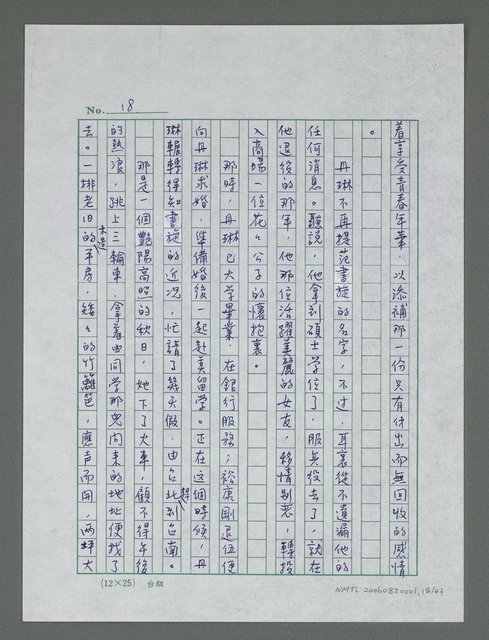 No. 18
着享受青春年華，以添補那一份只有付出而無回收的感情
。
丹琳不再提范書旋的名字，不过，耳裏從不遺漏他的
任何消息。聽說，他拿到碩士学位了，服兵役去了，就在
他退後的那年，他那位活躍美麗的女友，移情別恋，轉投
入商場一位花々公子的懷抱裏。
那時，丹琳已大学畢業，在銀行服務；裕康剛退伍便
向丹琳求婚，準備婚後一起赴美留学。正在这個時候，丹
琳輾轉得知書旋的近況，忙請了幾天假，由台北趕到台南。
那是一個艷陽高照的秋日，她下了火車，顧不得午後
的熱浪，跳上三輪車，拿着由同学那兒问来的地址便找了
去。一排老旧的木造平房，矮々的竹籬笆，應声而開，兩坪大
(12×25) 台組
NMTL 20060820001, 18/43